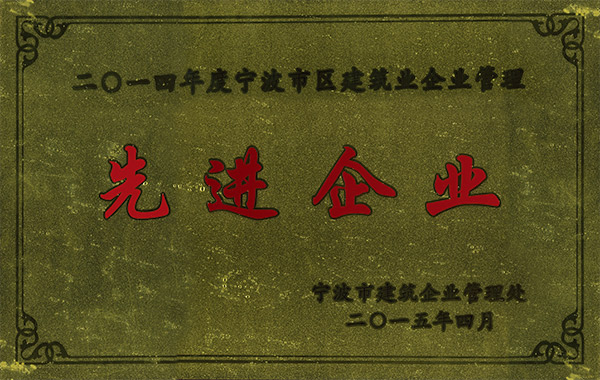 二〇一四年度宁波市区建筑业企业管理
先进企业
宁波市建筑企业管理处
二〇一五年四月